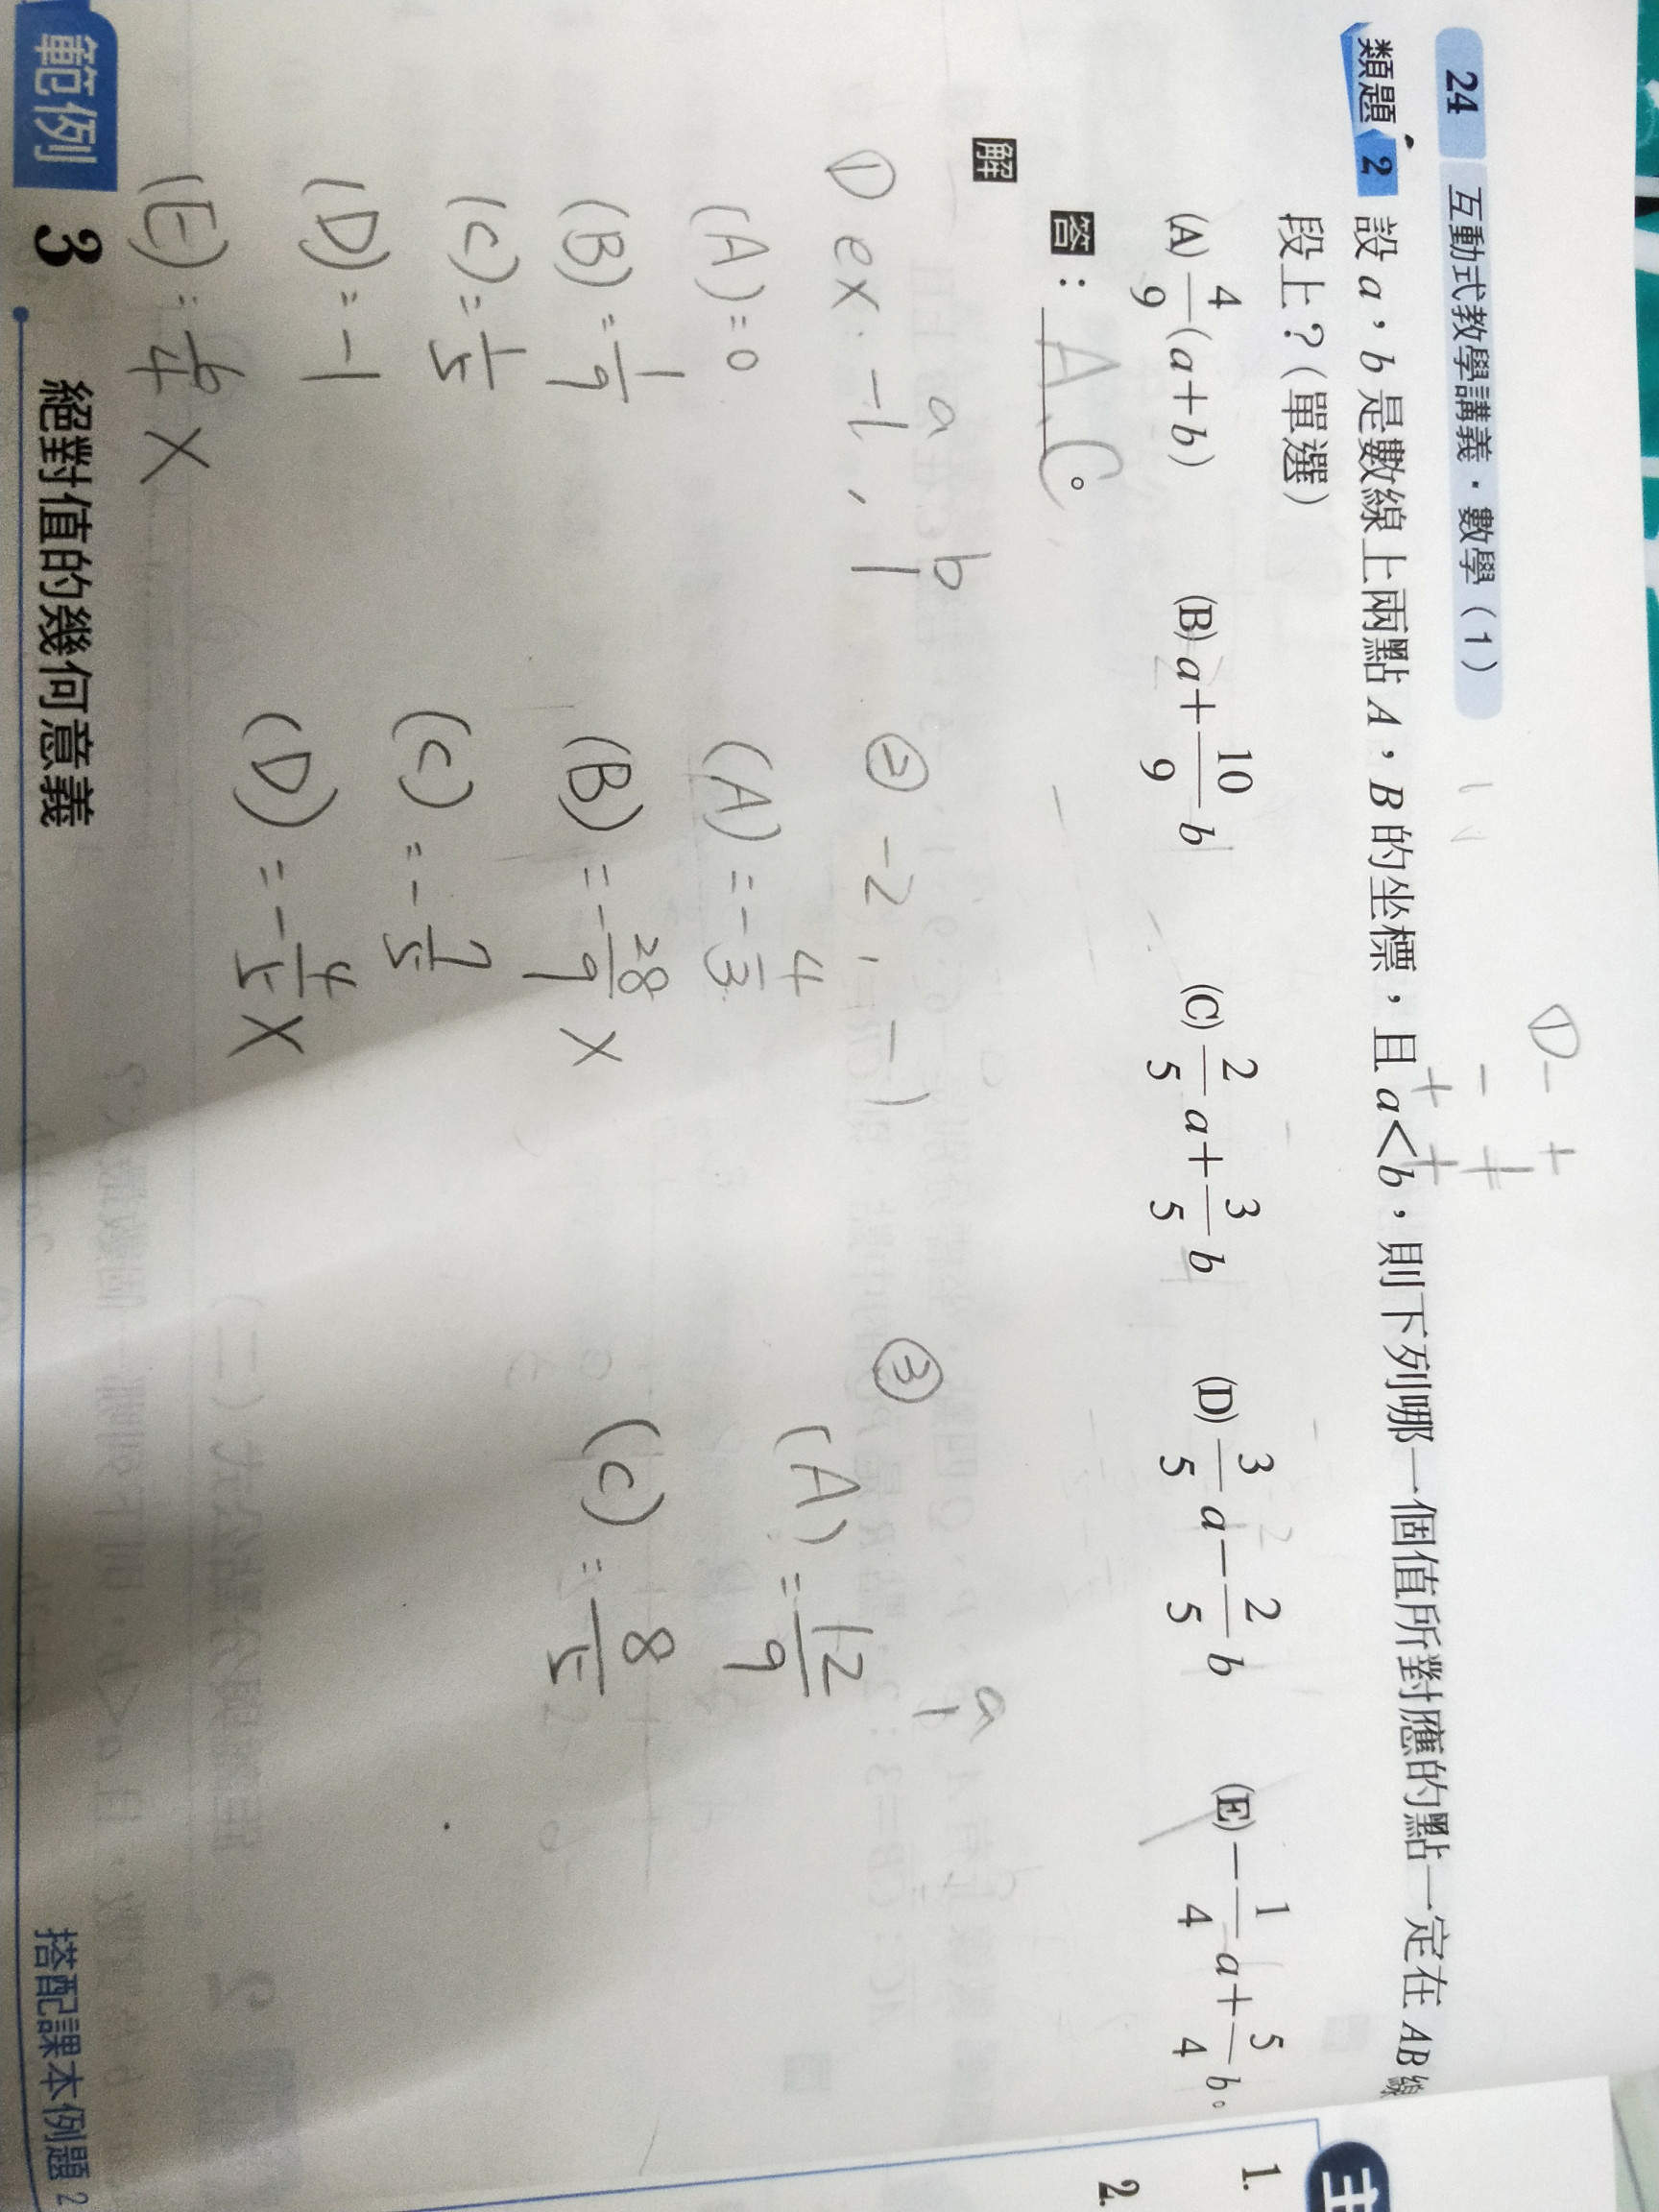 24 互動式教學講義・數學(1)
① - +
- +
+ +
類題 2 設 a,b 是數線上兩點 A,B 的坐標,且 a<b,則下列哪一個值所對應的點一定在 AB 線
段上?(單選)
(A) 4/9 (a+b) (B) a+10/9 b (C) 2/5 a+3/5 b (D) 3/5 a-2/5 b (E) -1/4 a+5/4 b。
答:A、C。
解
a b
① ex: -1, 1
(A)=0
(B)=1/9
(C)=1/5
(D)=-1
(E)=6/4 X
② -2, -1
(A)=-4/3
(B)=-28/9 X
(C)=-7/5
(D)=-4/5 X
③
a
1
(A)=12/9
(C)=8/5
範例 3 絕對值的幾何意義 搭配課本例題 2
主
1.
2.